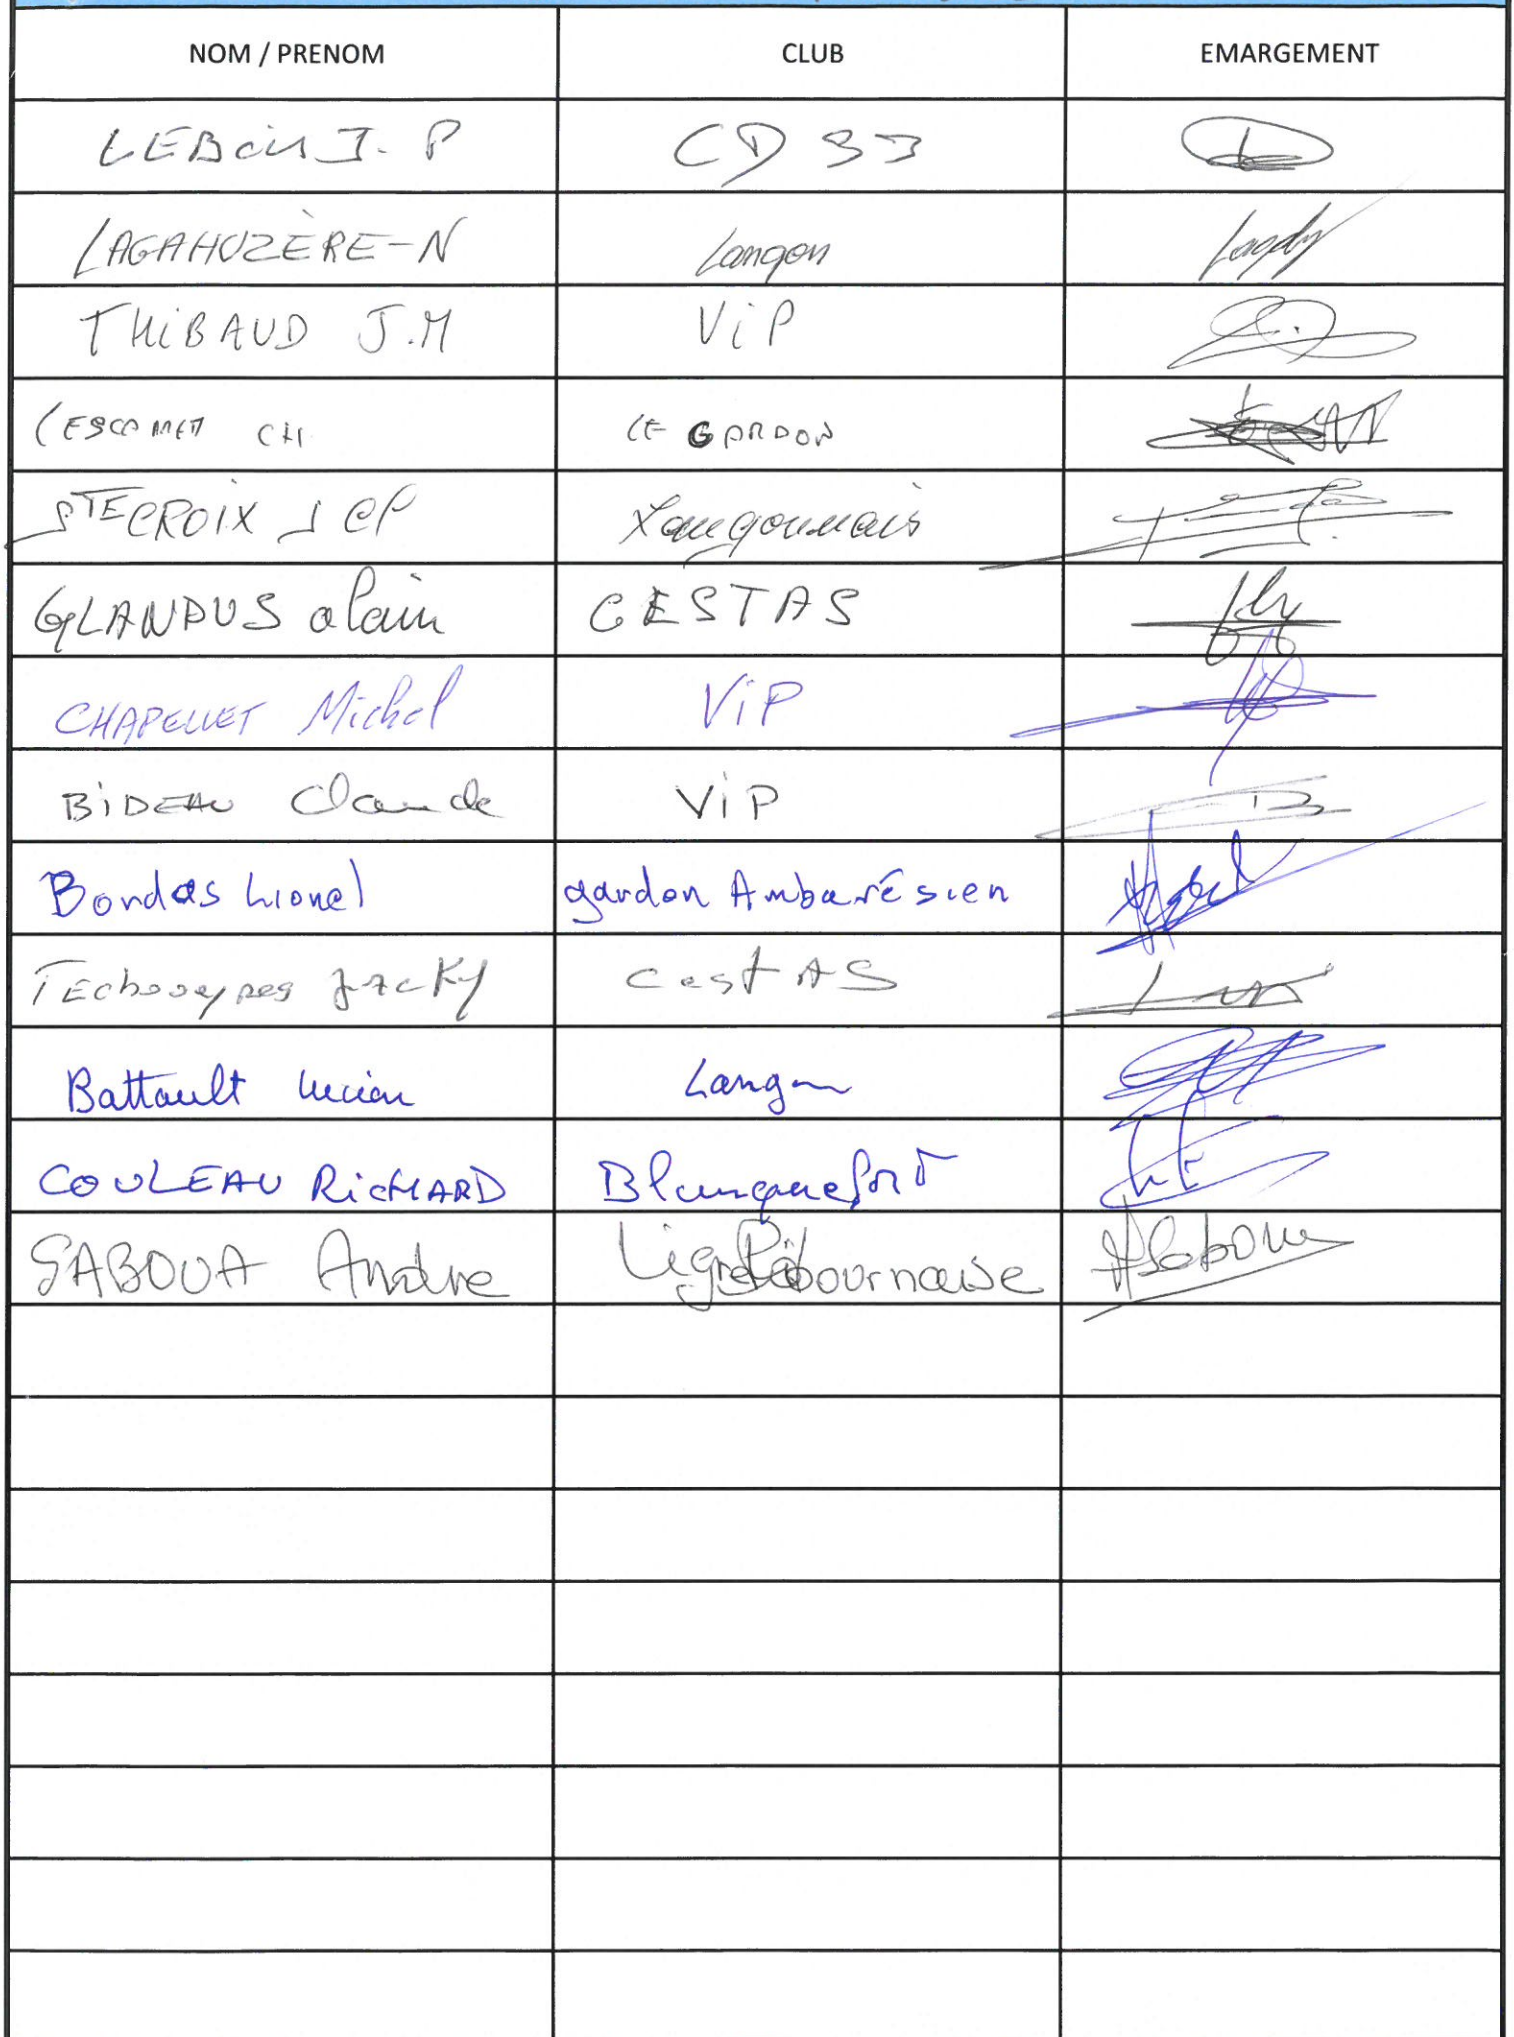 NOM / PRENOM CLUB EMARGEMENT
LEBOIS J. P CD 33
LAGAHUZÈRE-N Langon
THIBAUD J.M ViP
CH LE GARDON
STE CROIX J Langonnais
GLANDUS alain CESTAS
CHAPELLET Michel ViP
BiDEAU Claude ViP
Bordas Lionel gardon Ambarésien
JACKY CestAS
Battault Lucien Langon
COULEAU RiCHARD Blanquefort
SABOUA André Ligne Libournaise